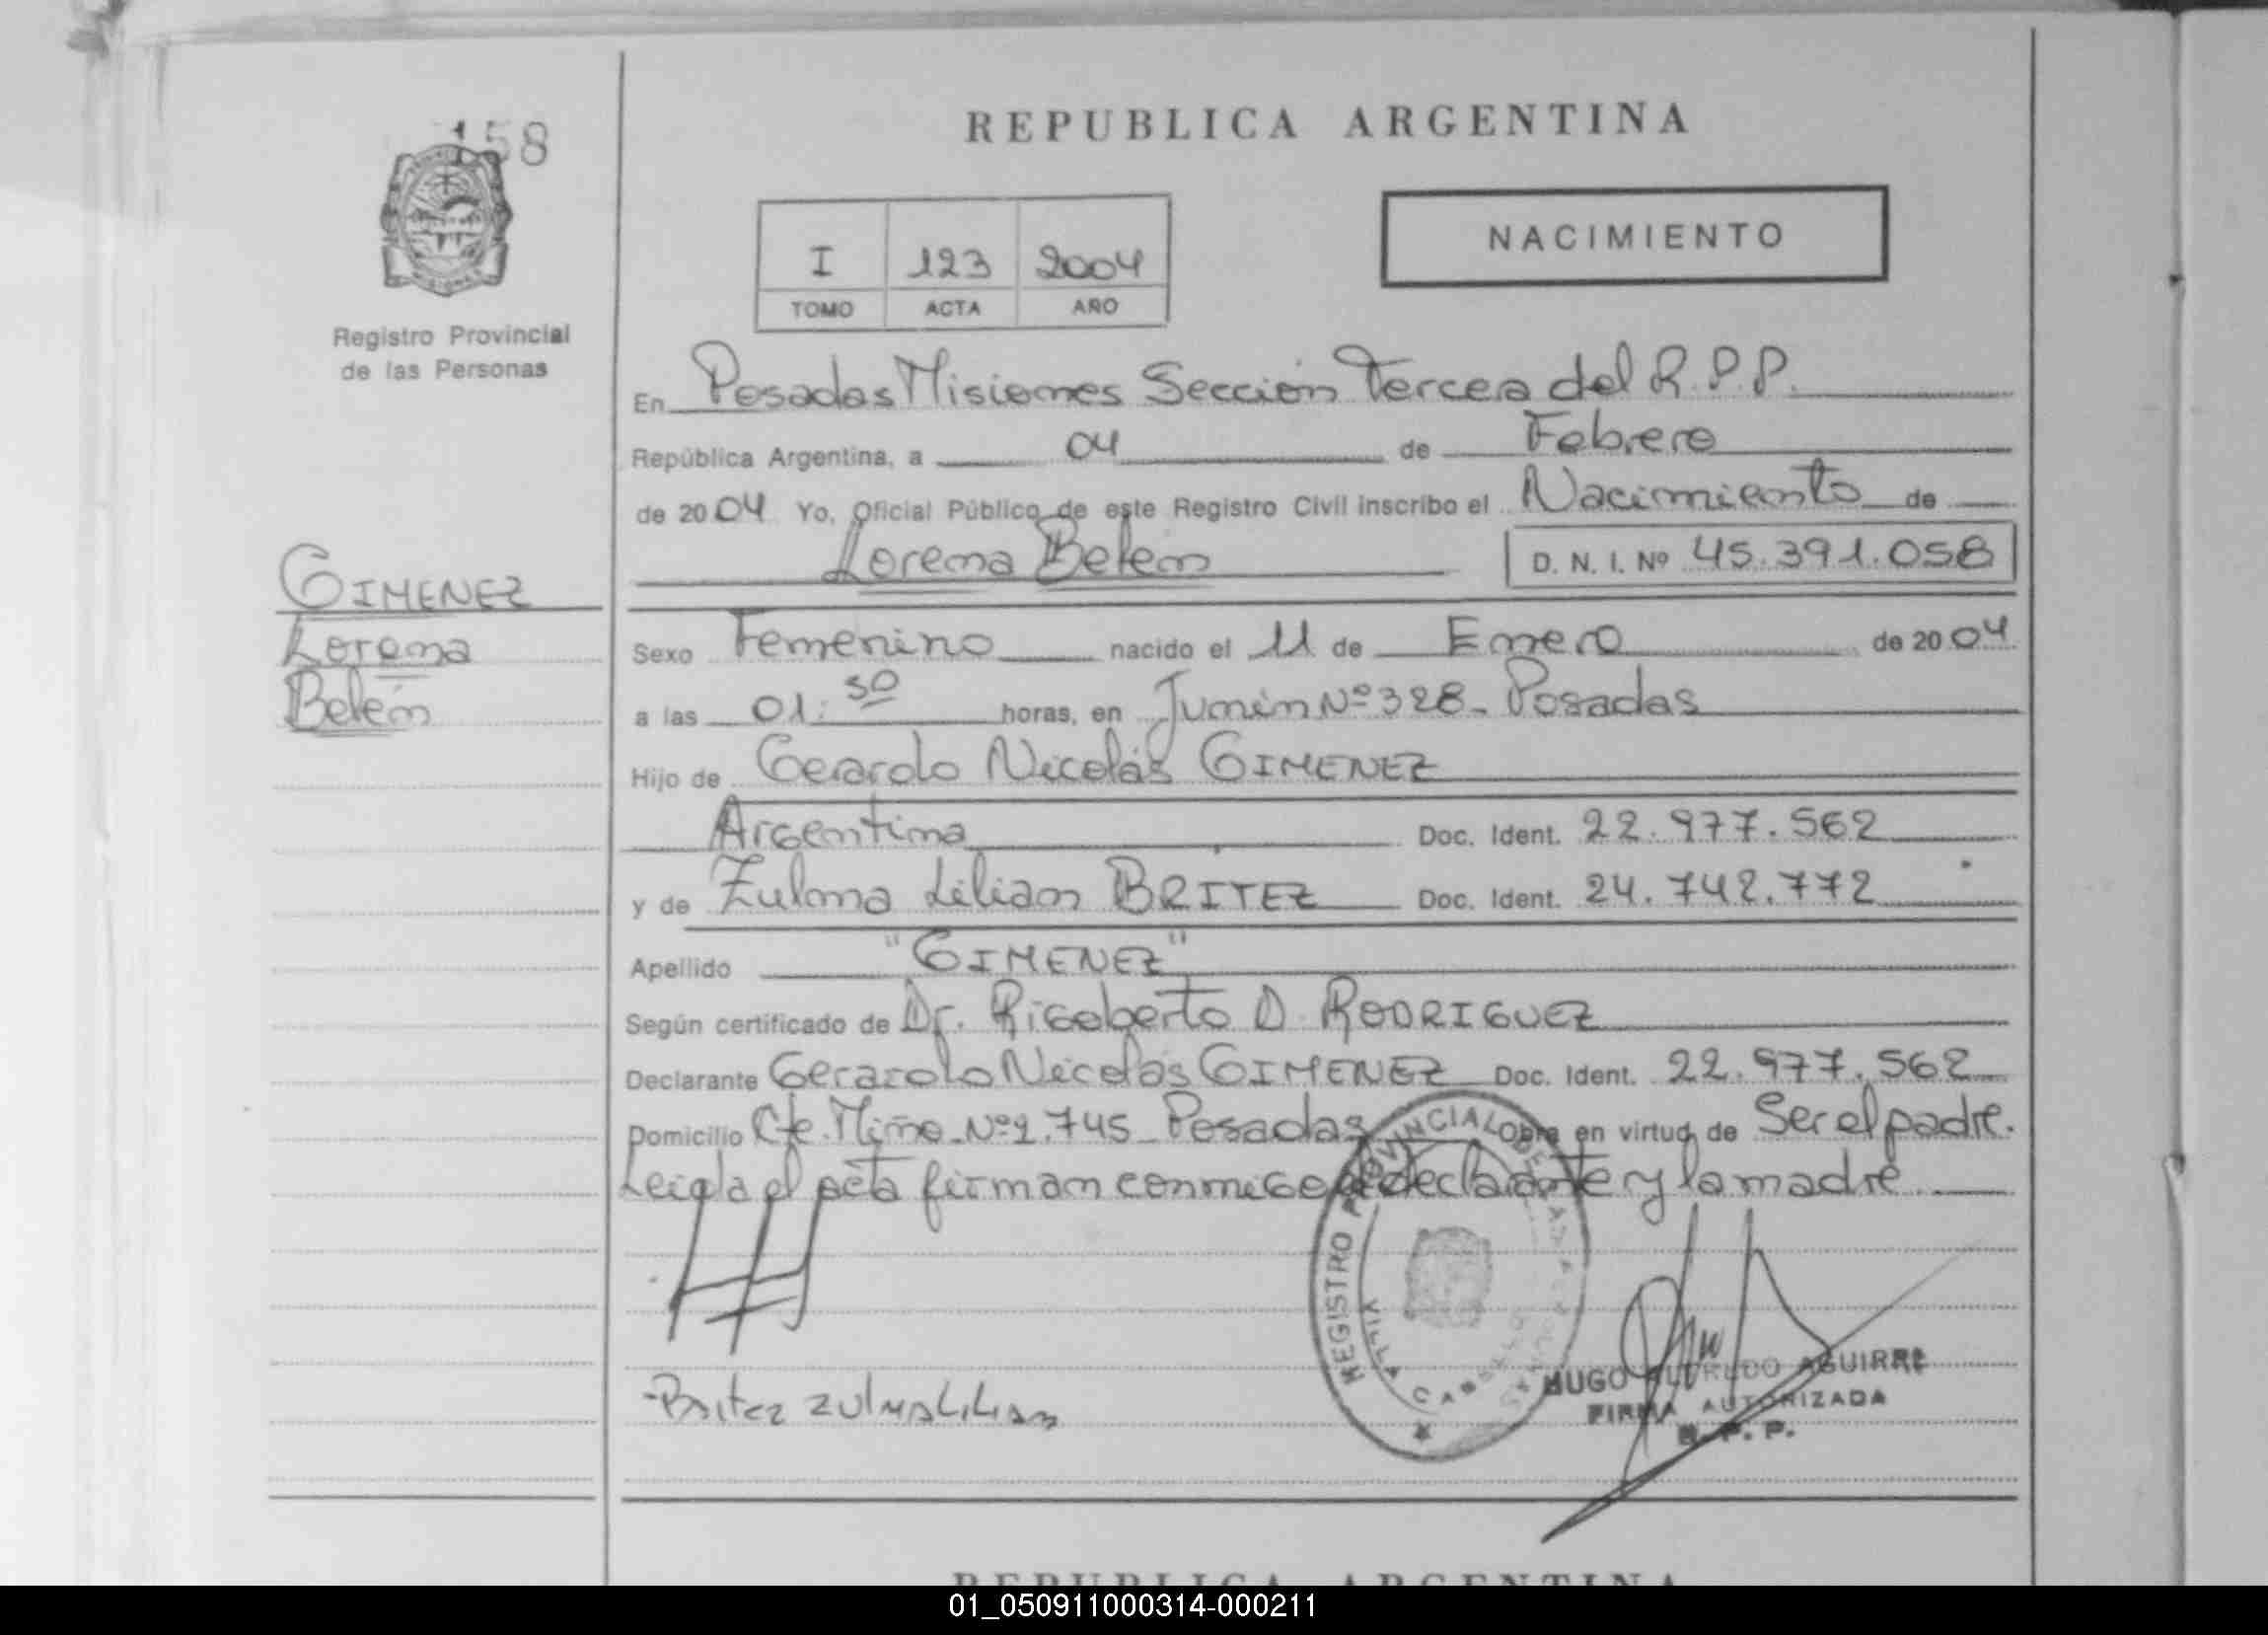 158
REPUBLICA ARGENTINA
I 123 2004
TOMO ACTA AÑO
NACIMIENTO
Registro Provincial
de las Personas
En Posadas Misiones Sección Tercera del R.P.P.
República Argentina, a 04 de Febrero
de 2004 Yo, Oficial Público de este Registro Civil inscribo el Nacimiento de
Lorena Belén D. N. I. Nº 45.391.058
GIMENEZ
Lorena
Belén
Sexo Femenino nacido el 11 de Enero de 2004
a las 01:30 horas, en Junín Nº 328 - Posadas
Hijo de Gerardo Nicolás GIMENEZ
Argentina Doc. Ident. 22.977.562
y de Zulma Lilian BRITEZ Doc. Ident. 24.742.772
Apellido "GIMENEZ"
Según certificado de Dr. Rigoberto D. RODRIGUEZ
Declarante Gerardo Nicolás GIMENEZ Doc. Ident. 22.977.562
Domicilio Cte. Miño Nº 2.745 Posadas Obra en virtud de Ser el padre.
Leida el acta firman conmigo el declarante y la madre
REGISTRO PROVINCIAL DE LAS
VILLA CABELLO
-Britez Zulma Lilian
HUGO ALFREDO AGUIRRE
FIRMA AUTORIZADA
R. P. P.
REPUBLICA ARGENTINA
01_050911000314-000211